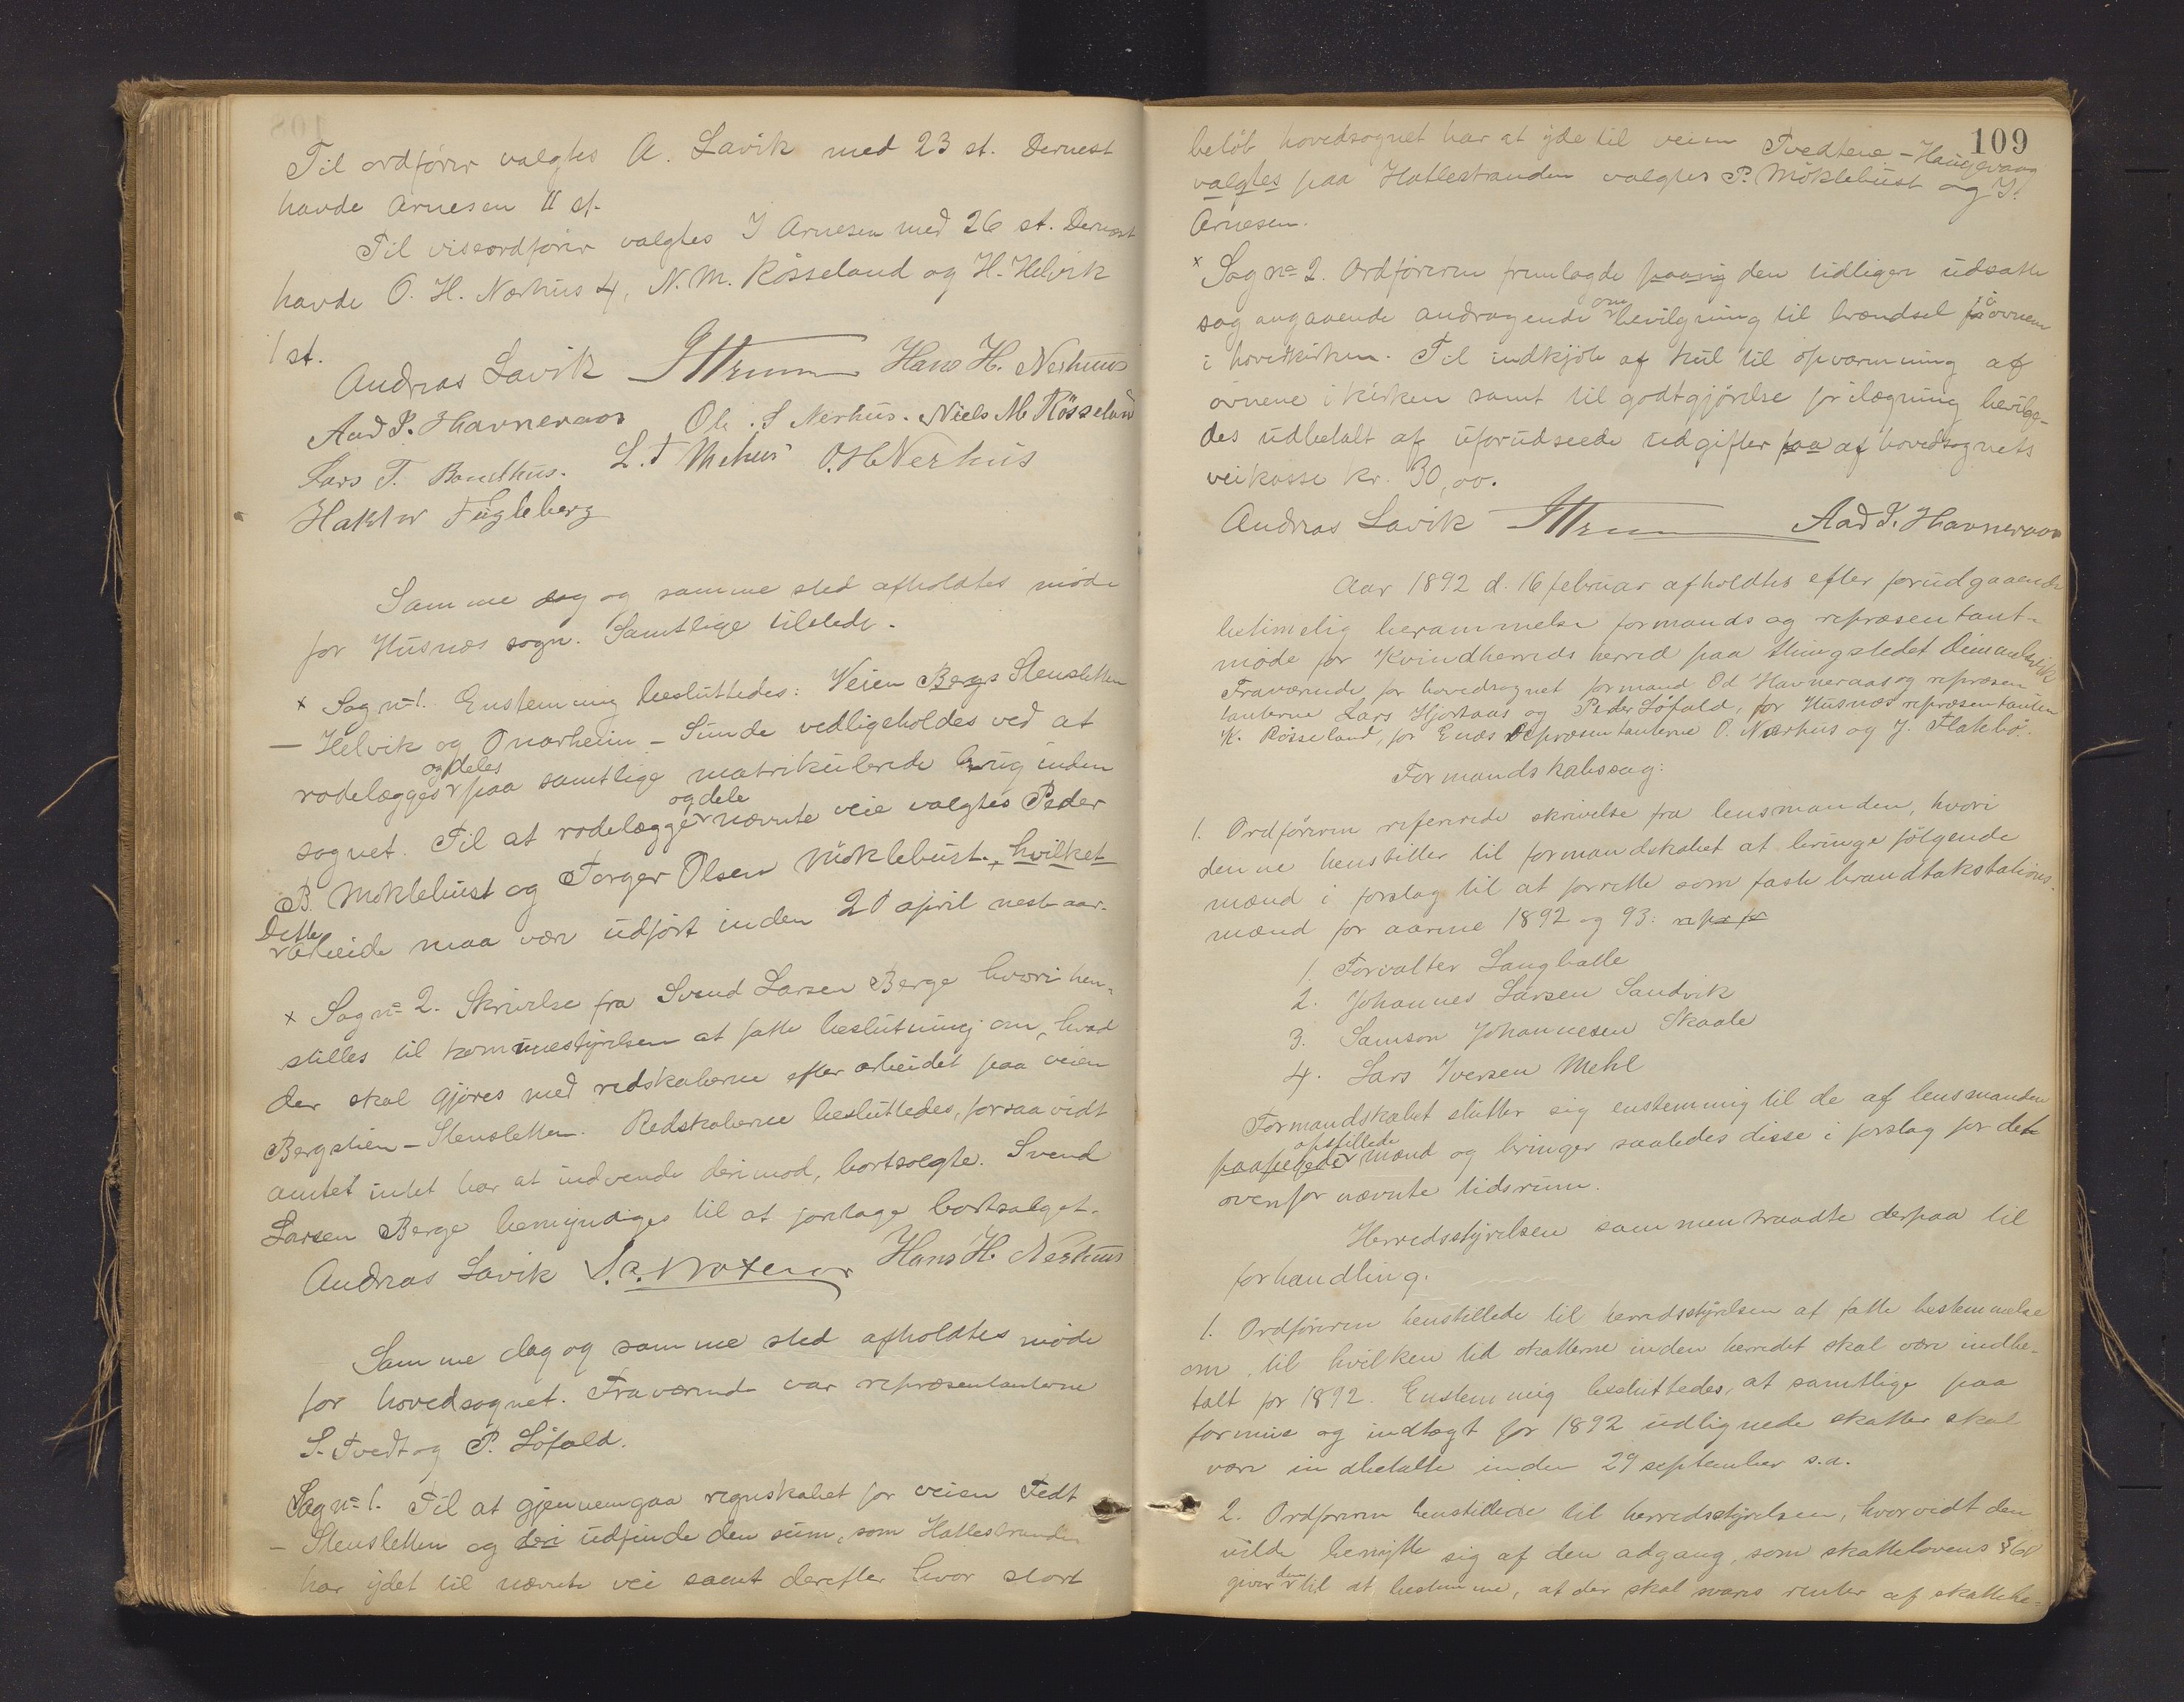 Til ordförer valgtes A. Lavik med 23 st. Dernest
havde Arnesen 11 st.
Til viseordförer valgtes J Arnesen med 26 st. Dernæst
havde O. H. Nærhus 4, N. M. Rösseland og H. Helvik
1 st.
Andreas Lavik Hans H. Nerhuus
Aad K. Havneraas Ole S Nerhus. Niels M Rösseland
Lars T. Bondhus. L. T Mehus O. H Nerhus
Haktor Fugleberg
Samme dag og samme sted afholdtes möde
for Husnæs sogn. Samtlige tilstede.
x Sag no 1. Enstemmig besluttedes: Veien Bergs Stensletten
— Helvik og Onarheim – Sunde vedligeholdes ved at
rodelægges og deles paa samtlige matrikulerede brug inden
sognet. Til at rodelægge og dele nævnte veie valgtes Peder
P. Möklebust og Torger Olsen Möklebust., hvilket
Dette arbeide maa være udfört inden 20 april neste aar.
x Sag no 2. Skrivelse fra Svend Larsen Berge hvori hen-
stilles til kommunestyrelsen at fatte beslutning om, hvad
der skal gjöres med redskaberne efter arbeidet paa veien
Bergstien – Stensletten. Redskaberne besluttedes, forsaavidt
amtet intet har at indvende derimod, bortsolgte. Svend
Larsen Berge bemyndiges til at foretage bortsalget.
Andreas Lavik Hans H. Nerhuus
Samme dag og samme sted afholdtes möde
for hovedsognet. Fraværende var repræsentanterne
S. Tvedt og P. Löfald.
Sag no 1. Til at gjennemgaa regnskabet for veien Tedt
– Stensletten og deri udfinde den sum, som Hatlestranden
har ydet til nævnte vei samt derefter hvor stort
109
belöb hovedsognet har at yde til veien Tvedtene – Haugevaag
valgtes paa Hatlestranden valgtes P. Möklebust og J.
Arnesen.
x Sag no 2. Ordföreren fremlagde paany den tidligere udsatte
sag angaaende andragende om bevilgning til brændsel i ovnene
i hovedkirken. Til indkjöb af kul til opvarmning af
ovnene i kirken samt til godtgjörelse for ilægning bevilge-
des udbetalt af uforudseede udgifter paa af hovedsognets
veikasse kr. 30,00.
Andreas Lavik Aad K. Havneraas
Aar 1892 d. 16 februar afholdtes efter forudgaaende
betimelig berammelse formands og repræsentant-
möde for Kvindherreds herred paa thingstedet Dimmelsvik
Fraværende for hovedsognet formand Od Havneraas og repræsen
tanterne Lars Hjortaas og Peder Löfald, for Husnæs repræsentanten
K. Rösseland, for Enæs Repræsentanterne O. Nærhus og J. Flatebö.
Formandskabssag:
1. Ordföreren refererede skrivelse fra lensmanden, hvori
denne henstiller til formandskabet at bringe fölgende
mænd i forslag til at forrette som faste brandtakstations-
mænd for aarene 1892 og 93: repr for
1. Forvalter Langballe
2. Johannes Larsen Sandvik
3. Samson Johannesen Skaale
4. Lars Iversen Mehl
Formandskabet slutter sig enstemmig til de af lensmanden
paapegede opstillede mænd og bringer saaledes disse i forslag for det
ovenfor nævnte tidsrum.
Herredsstyrelsen sammentraadte derpaa til
forhandling.
1. Ordföreren henstillede til herredsstyrelsen at fatte bestemmelse
om, til hvilken tid skatterne inden herredet skal være indbe-
talt for 1892. Enstemmig besluttedes, at samtlige paa
formue og indtægt for 1892 udlignede skatter skal
være indbetalte inden 29 september s.a.
2. Ordföreren henstillede til herredsstyrelsen, hvorvidt den
vilde benytte sig af den adgang, som skattelovens § 60
giver den til at bestemme, at der skal svares renter af skattebe-